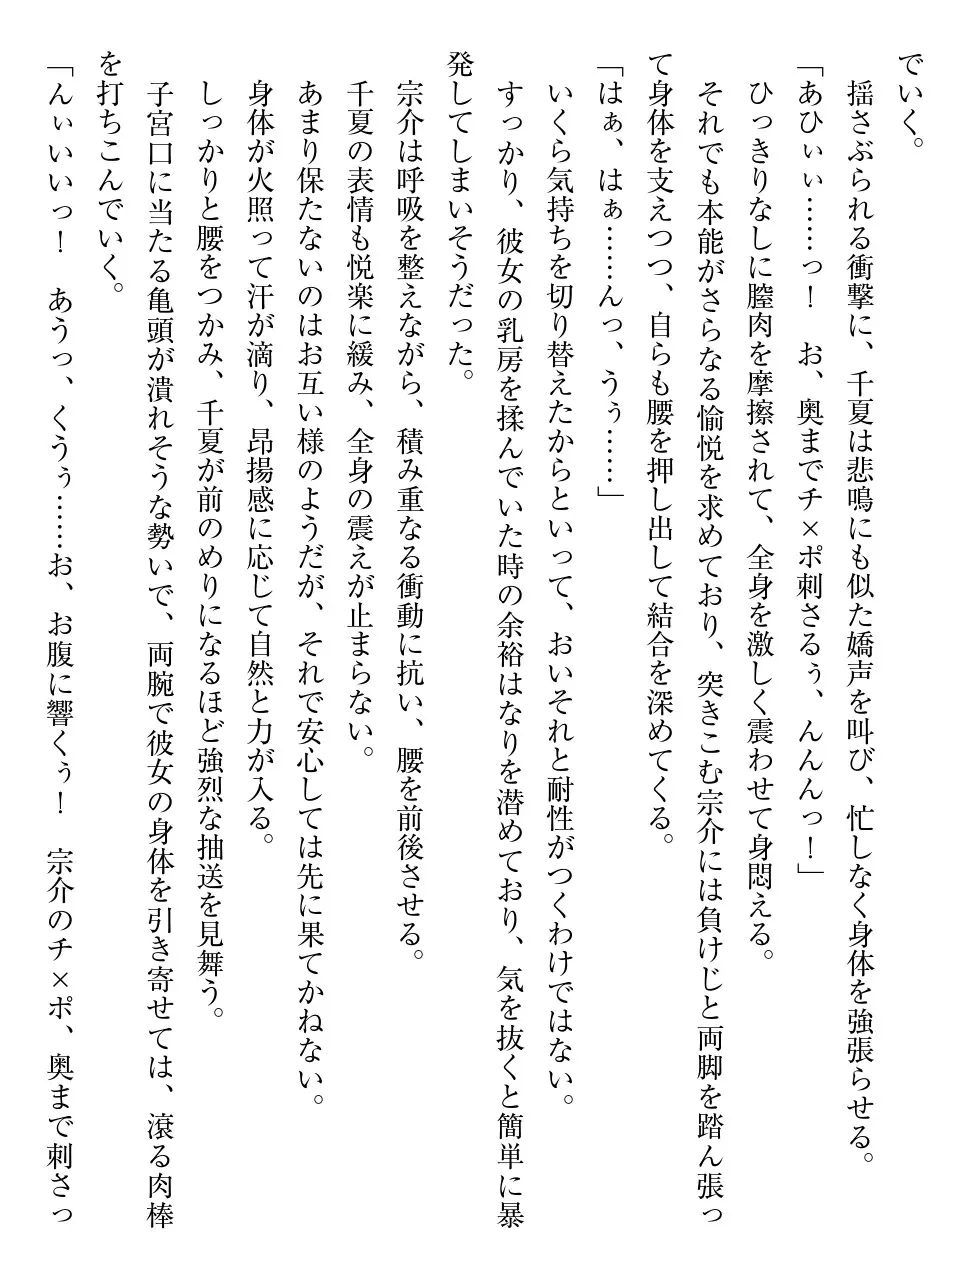 でいく。
　揺さぶられる衝撃に、千夏は悲鳴にも似た嬌声を叫び、忙しなく身体を強張らせる。
「あひぃぃ……っ！　お、奥までチ×ポ刺さるぅ、んんんっ！」
　ひっきりなしに膣肉を摩擦されて、全身を激しく震わせて身悶える。
　それでも本能がさらなる愉悦を求めており、突きこむ宗介には負けじと両脚を踏ん張っ
て身体を支えつつ、自らも腰を押し出して結合を深めてくる。
「はぁ、はぁ……んっ、うぅ……」
　いくら気持ちを切り替えたからといって、おいそれと耐性がつくわけではない。
　すっかり、彼女の乳房を揉んでいた時の余裕はなりを潜めており、気を抜くと簡単に暴
発してしまいそうだった。
　宗介は呼吸を整えながら、積み重なる衝動に抗い、腰を前後させる。
　千夏の表情も悦楽に緩み、全身の震えが止まらない。
　あまり保たないのはお互い様のようだが、それで安心しては先に果てかねない。
　身体が火照って汗が滴り、昂揚感に応じて自然と力が入る。
　しっかりと腰をつかみ、千夏が前のめりになるほど強烈な抽送を見舞う。
　子宮口に当たる亀頭が潰れそうな勢いで、両腕で彼女の身体を引き寄せては、滾る肉棒
を打ちこんでいく。
「んぃいいっ！　あうっ、くうぅ……お、お腹に響くぅ！　宗介のチ×ポ、奥まで刺さっ